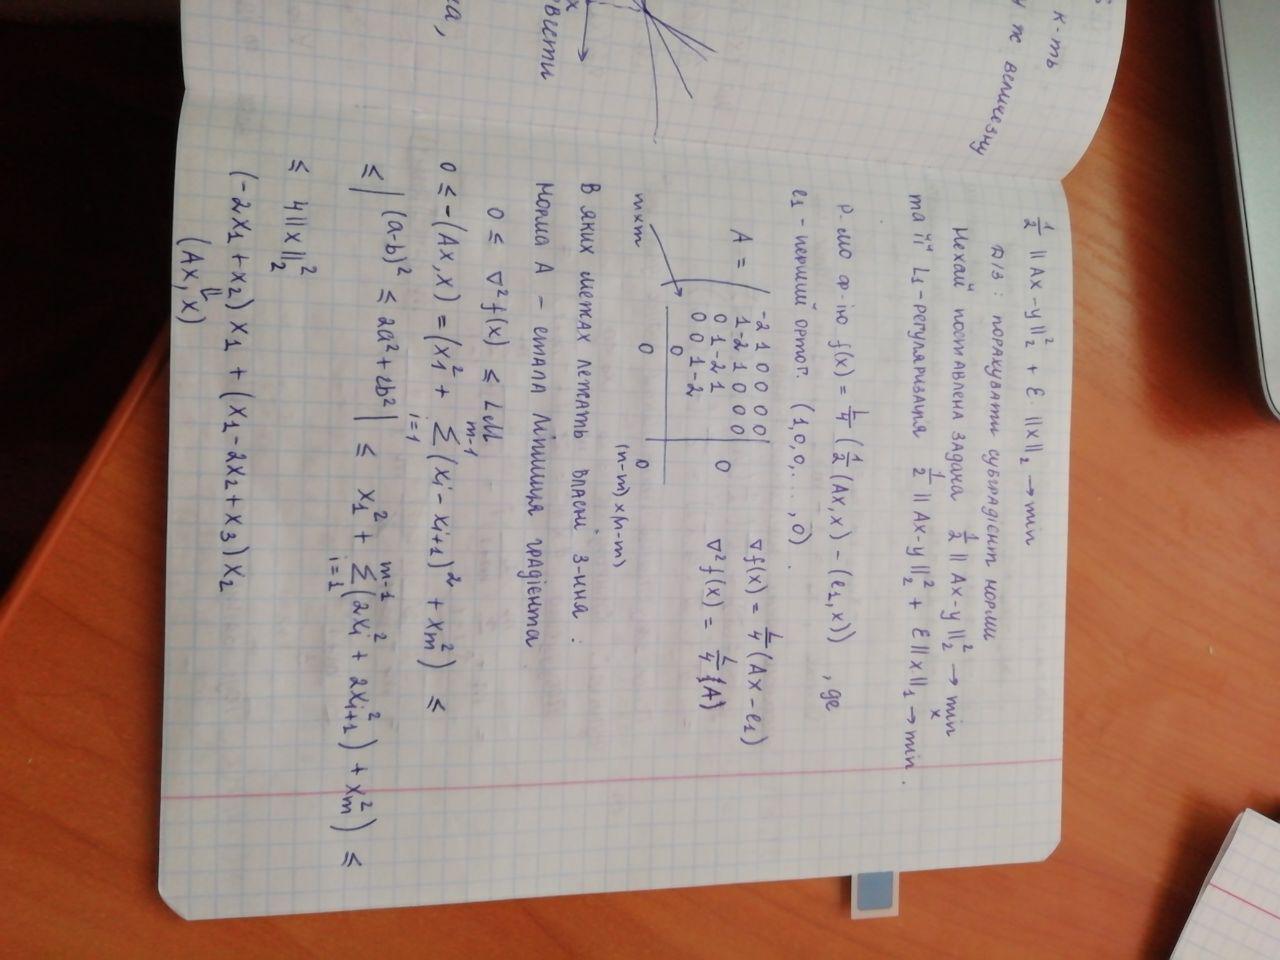 к-ть
у ж величезну
вести
ка,
1/2 ||Ax-y||₂² + ε·||x||₂ → min
Д/З: порахувати субградієнт норми
Нехай поставлена задача 1/2 ||Ax-y||₂² → min x
та її L₁-регуляризація 1/2 ||Ax-y||₂² + ε||x||₁ → min.
Р-мо ф-ію f(x) = L/4 (1/2 (Ax,x) - (e₁,x)), де
e₁ - перший ортог. (1,0,0,...,0).
A =
-2 1 0 0 0 0
1 -2 1 0 0 0
0 1 -2 1
0 0 1 -2
0
0
0
0
m×m
(n-m)×(n-m)
∇f(x) = L/4 (Ax-e₁)
∇²f(x) = L/4 (A)
В яких межах лежать власні з-ння:
Норма A - стала Ліпшиця градієнта
0 ≤ ∇²f(x) ≤ LM
0 ≤ -(Ax,x) = (x₁² + Σ_{i=1}^{m-1} (xᵢ-xᵢ₊₁)² + xₘ²) ≤
≤ |(a-b)² ≤ 2a²+2b²| ≤ x₁² + Σ_{i=1}^{m-1} (2xᵢ² + 2xᵢ₊₁²) + xₘ²) ≤
≤ 4||x||₂²
(-2x₁+x₂)x₁ + (x₁-2x₂+x₃)x₂
⇓
(Ax,x)